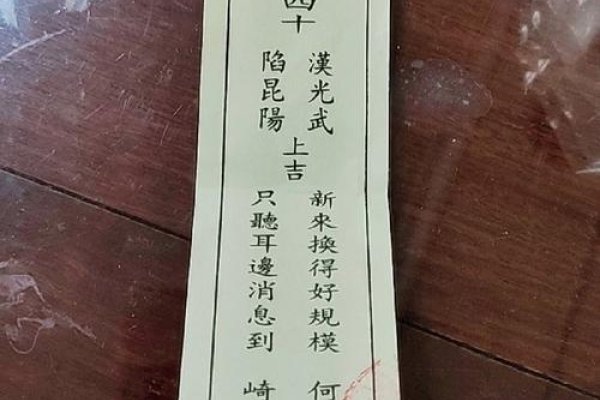 四十
漢光武
陷昆陽
上吉
新來換得好規模何
只聽耳邊消息到崎